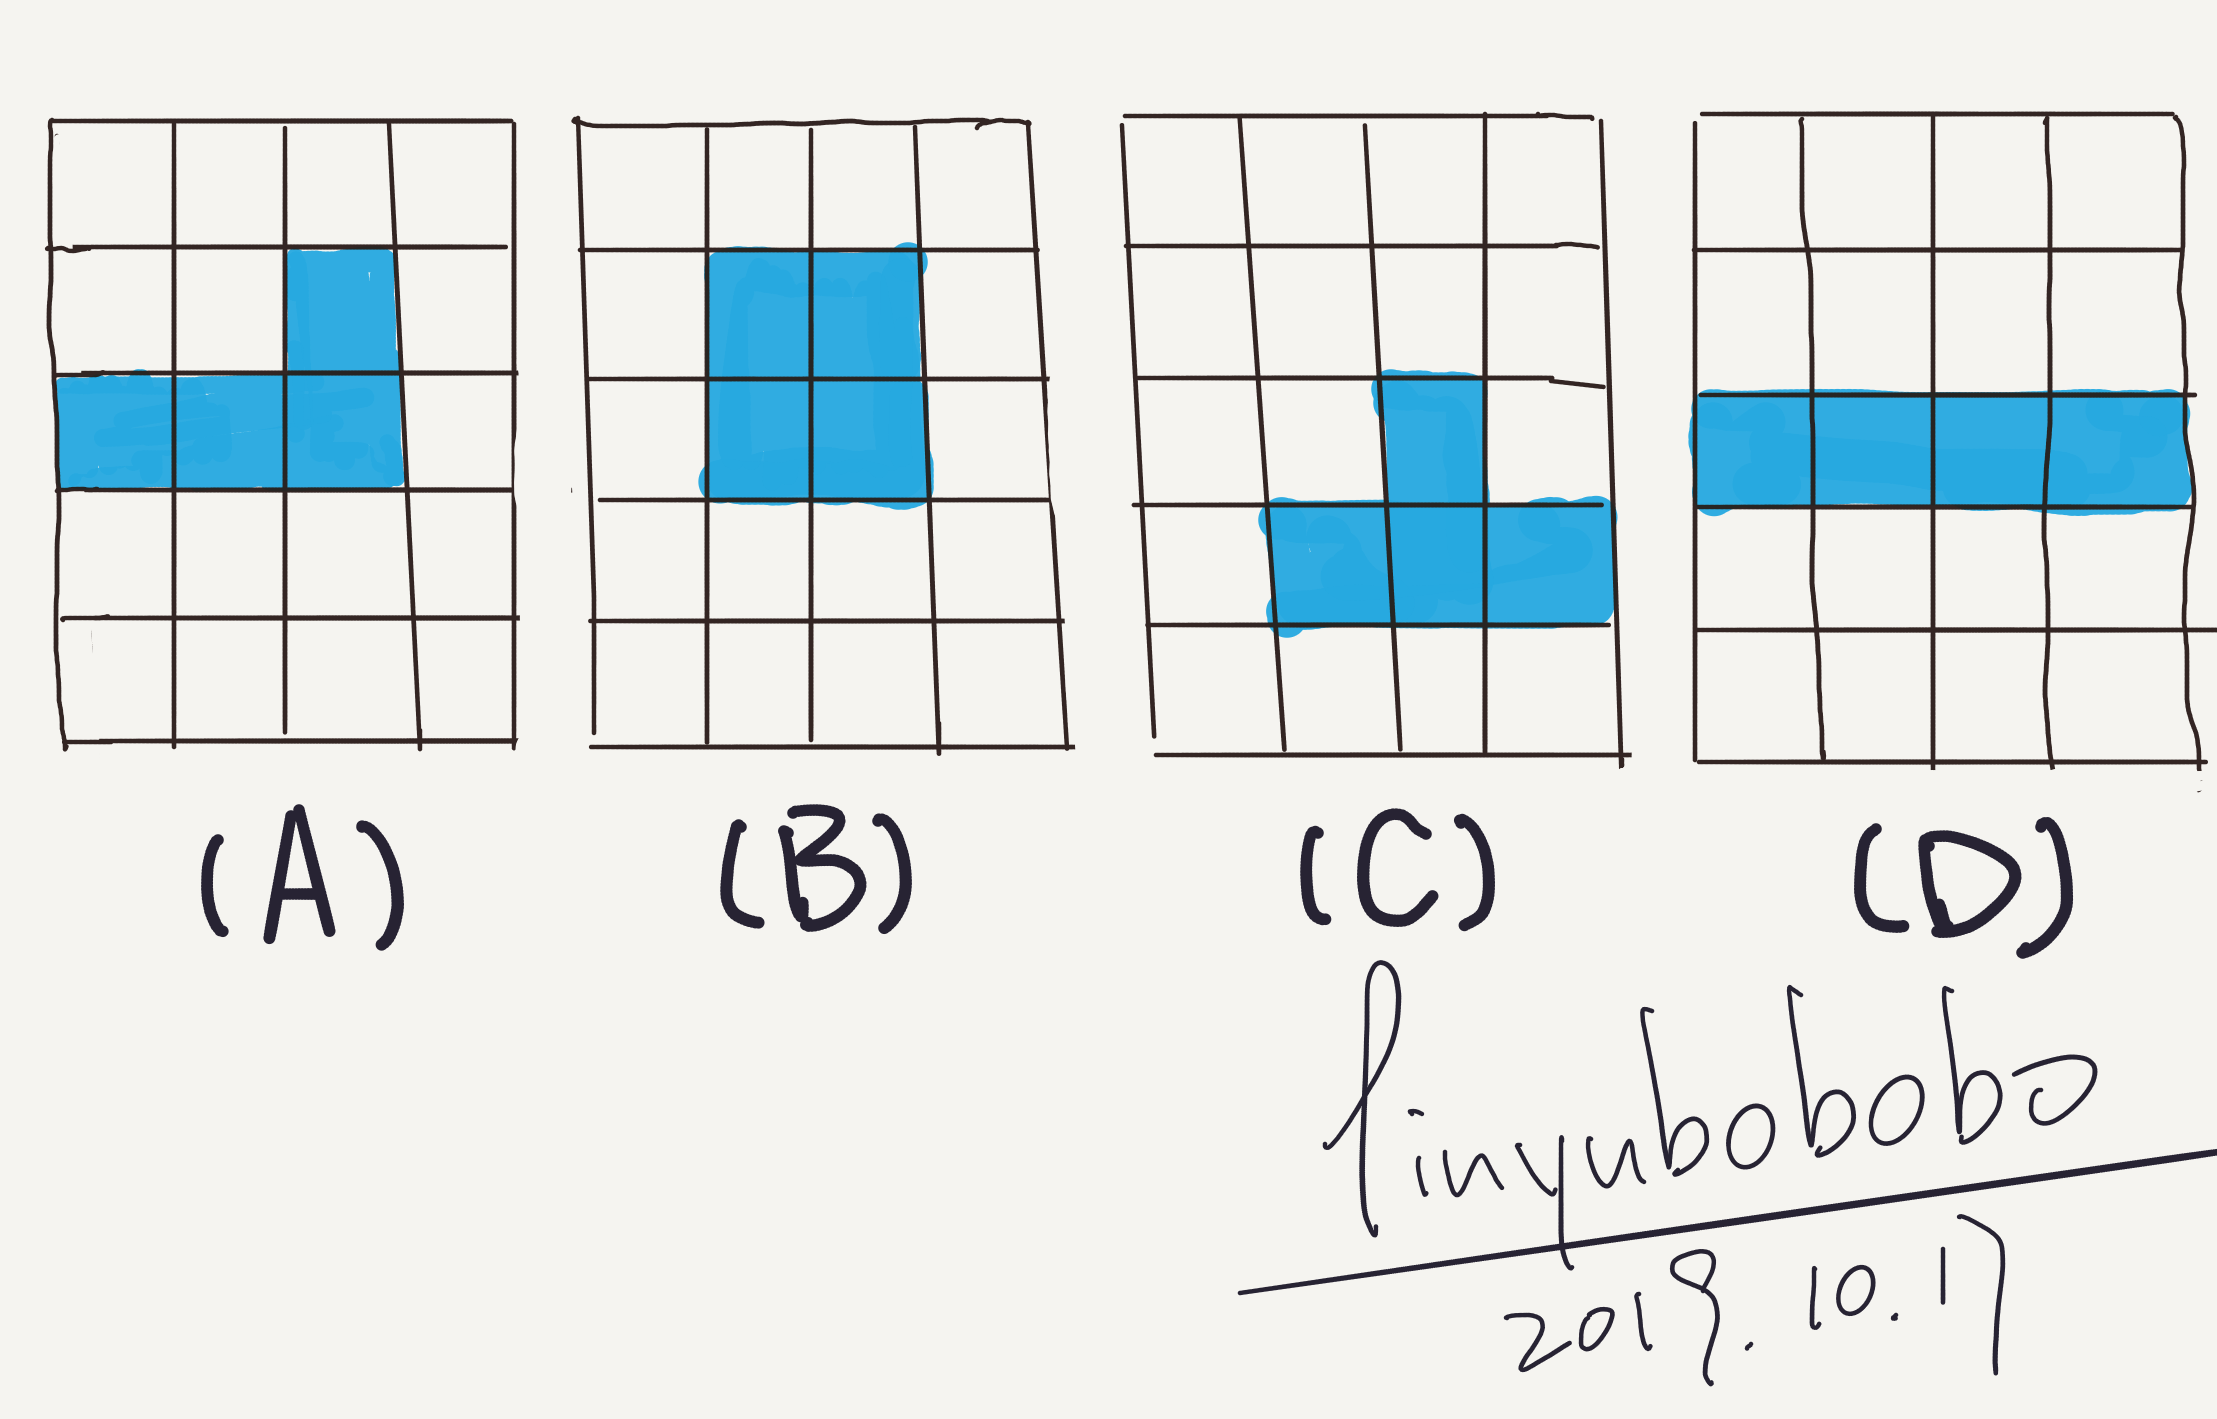 (A) (B) (C) (D)
linyubobobo
2019.10.17